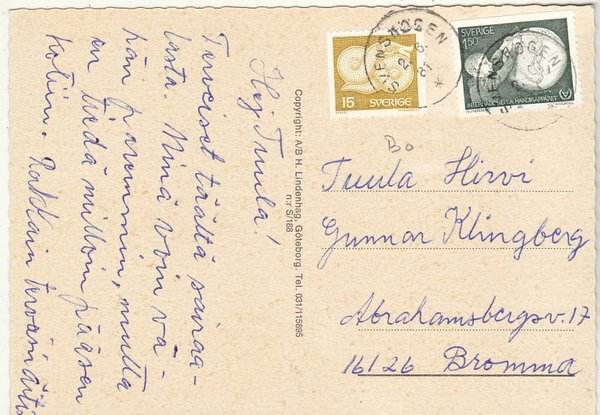 Hej Tuula!
Terveiset täältä sairaa-
lasta. Minä voin vä-
hän paremmin, mutta
en tiedä milloin pääsen
kotiin. Rakkain terveisin äiti
Copyright: A/B H. Lindenhag, Göteborg. Tel. 031/115895
n:r S/188
15
SVERIGE
SVENSHÖGEN
21 6
81
SVERIGE
150
INTERNATIONELLA HANDIKAPPÅRET
SVENSHÖGEN
Bo
Tuula Hirvi
Gunnar Klingberg
Abrahamsbergsv. 17
161 26 Bromma